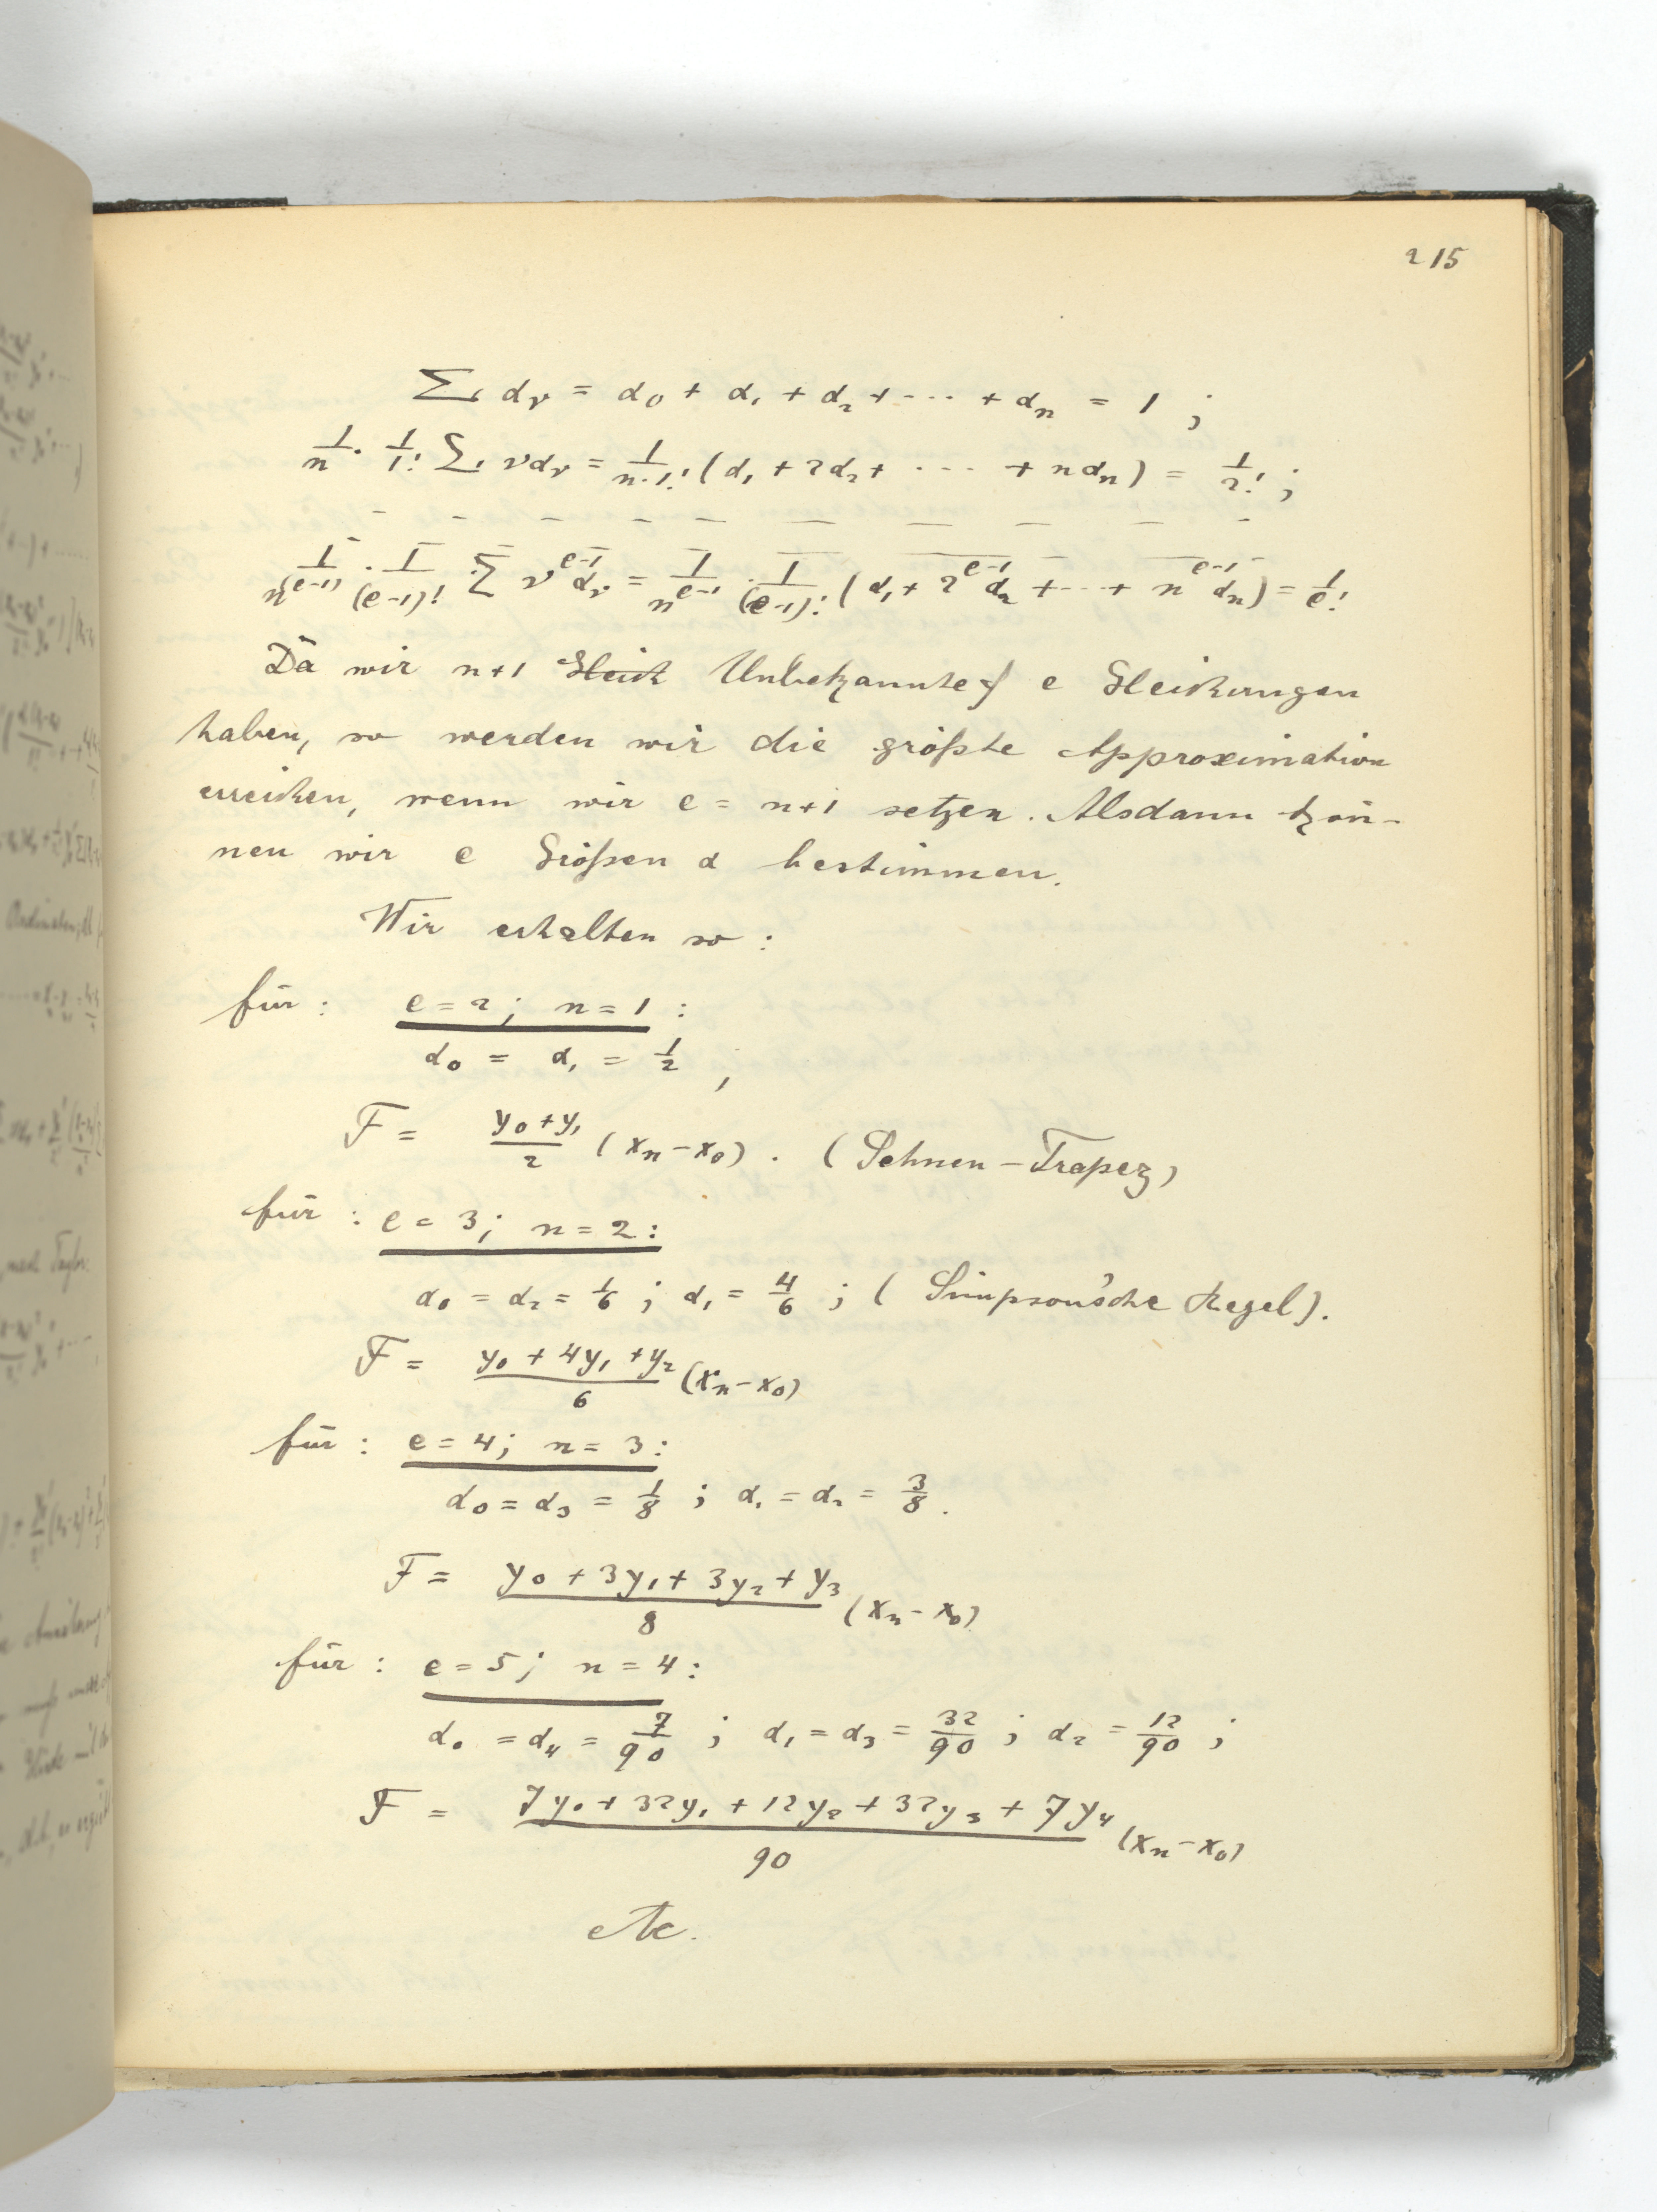 215
∑ α_ν = α_0 + α_1 + α_2 + ··· + α_n = 1 ;
1/n · 1/1! ∑ ν α_ν = 1/(n·1!) (α_1 + 2α_2 + ··· + n α_n) = 1/2! ;
1/n^(e-1) · 1/(e-1)! · ∑ ν^(e-1) α_ν = 1/n^(e-1) · 1/(e-1)! (α_1 + 2^(e-1) α_2 + ··· + n^(e-1) α_n) = 1/e!
Da wir n+1 Gleich Unbekannte & e Gleichungen
haben, so werden wir die größte Approximation
erreichen, wenn wir e = n+1 setzen. Alsdann kön-
nen wir e Größen α bestimmen.
Wir erhalten so :
für : e = 2 ; n = 1 :
α_0 = α_1 = 1/2 ;
F = (y_0 + y_1)/2 (x_n - x_0) . (Sehnen-Trapez)
für : e = 3 ; n = 2 :
α_0 = α_2 = 1/6 ; α_1 = 4/6 ; ( Simpson'sche Regel ).
F = (y_0 + 4y_1 + y_2)/6 (x_n - x_0)
für : e = 4 ; n = 3 :
α_0 = α_3 = 1/8 ; α_1 = α_2 = 3/8 .
F = (y_0 + 3y_1 + 3y_2 + y_3)/8 (x_n - x_0)
für : e = 5 ; n = 4 :
α_0 = α_4 = 7/90 ; α_1 = α_3 = 32/90 ; α_2 = 12/90 ;
F = (7y_0 + 32y_1 + 12y_2 + 32y_3 + 7y_4)/90 (x_n - x_0)
etc.